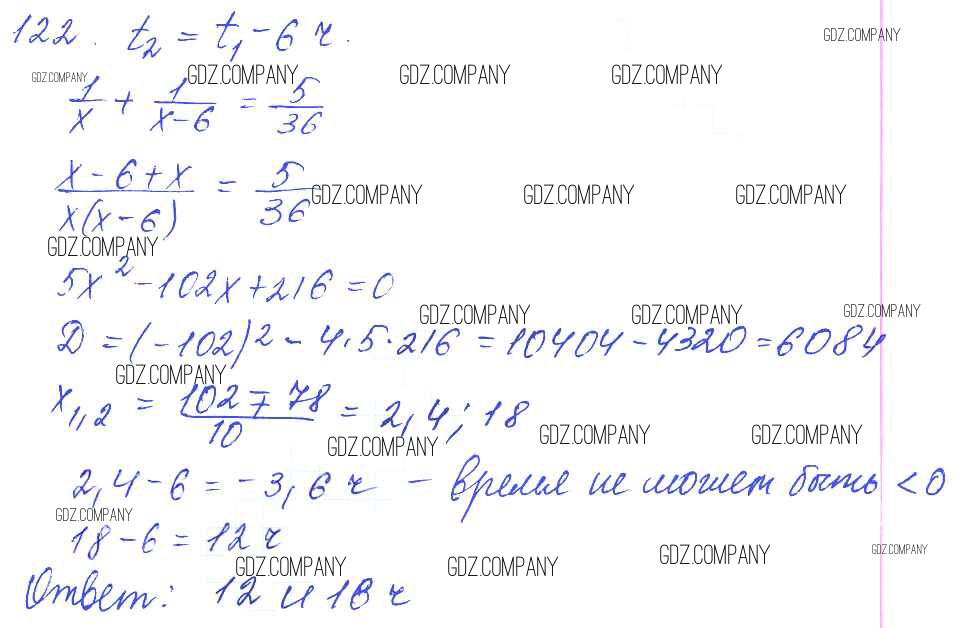 122. t₂ = t₁ - 6 ч.
GDZ.COMPANY
GDZ.COMPANY GDZ.COMPANY GDZ.COMPANY GDZ.COMPANY
1/x + 1/(x-6) = 5/36
(x - 6 + x)/(x(x-6)) = 5/36
GDZ.COMPANY GDZ.COMPANY GDZ.COMPANY
GDZ.COMPANY
5x² - 102x + 216 = 0
GDZ.COMPANY GDZ.COMPANY GDZ.COMPANY
D = (-102)² - 4·5·216 = 10404 - 4320 = 6084
GDZ.COMPANY
x₁,₂ = (102 ∓ 78)/10 = 2,4; 18
GDZ.COMPANY GDZ.COMPANY GDZ.COMPANY
2,4 - 6 = -3,6 ч - время не может быть < 0
GDZ.COMPANY
18 - 6 = 12 ч
GDZ.COMPANY GDZ.COMPANY GDZ.COMPANY GDZ.COMPANY
Ответ: 12 и 18 ч